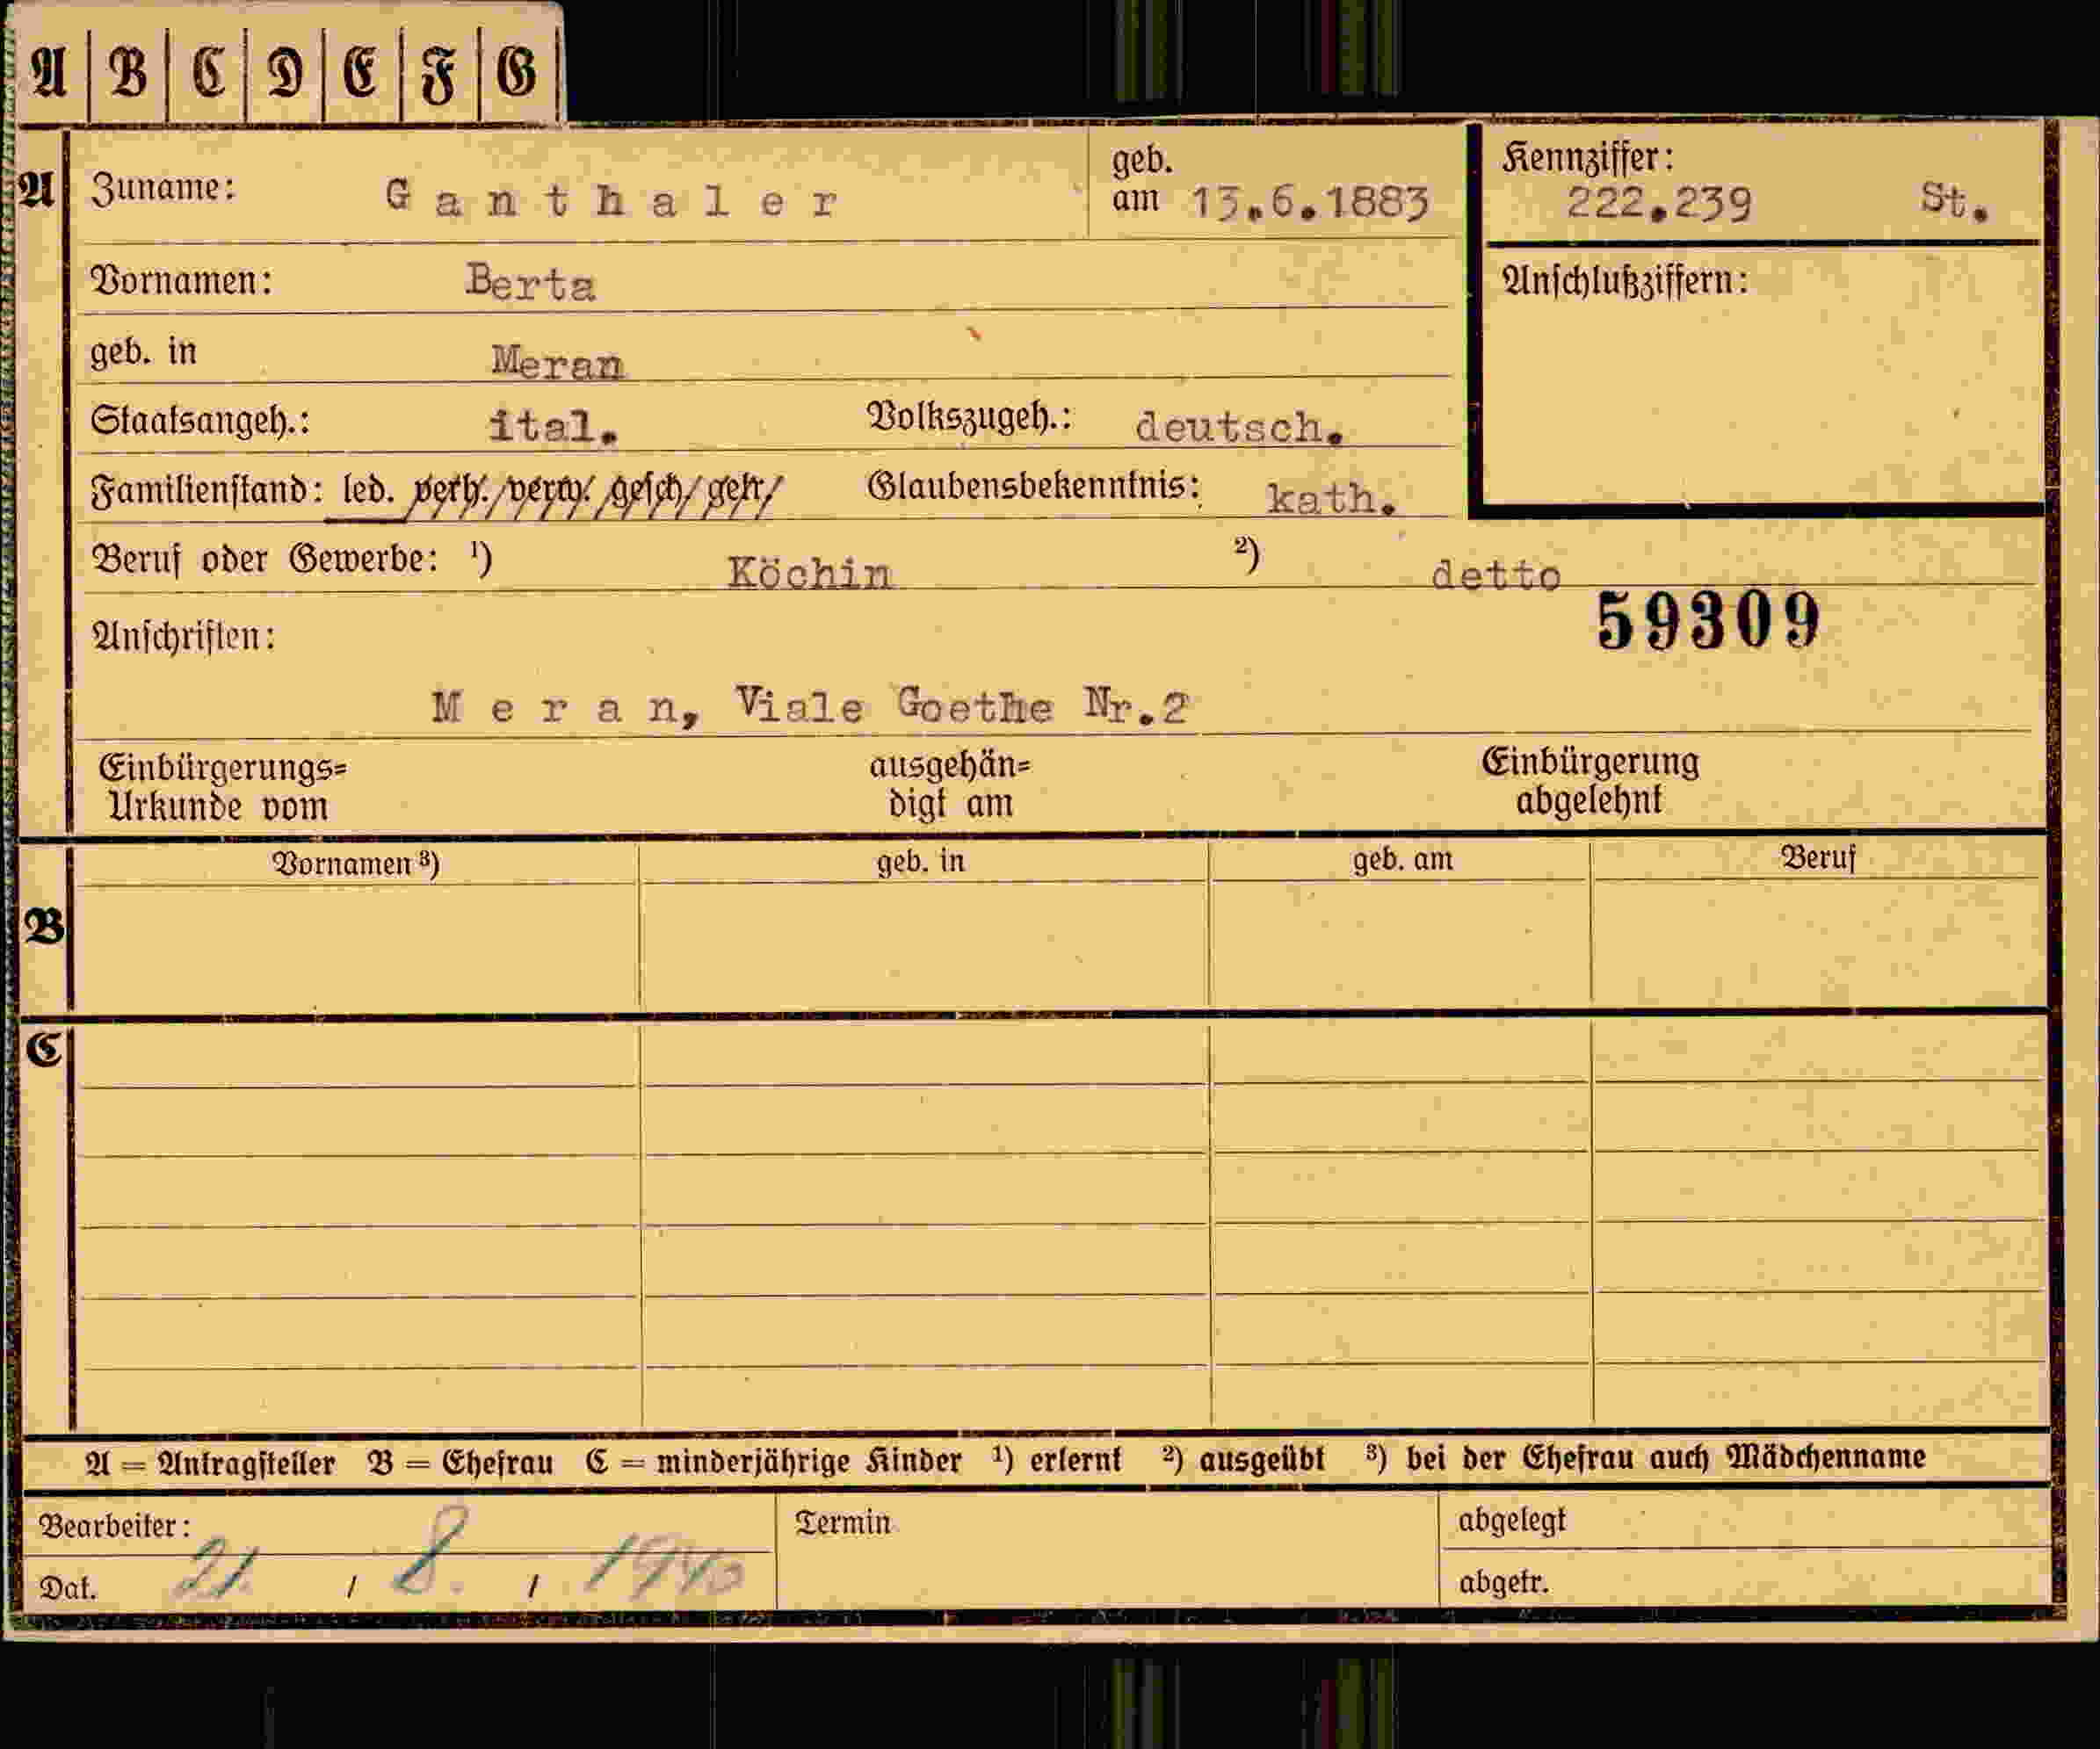 A B C D E F G
A Zuname: Ganthaler geb. am 13.6.1883 Kennziffer: 222.239 St.
Vornamen: Berta Anschlußziffern:
geb. in Meran
Staatsangeh.: ital. Volkszugeh.: deutsch.
Familienstand: led. verh. verw. gesch. getr. Glaubensbekenntnis: kath.
Beruf oder Gewerbe: ¹) Köchin ²) detto
59309
Anschriften:
Meran, Viale Goethe Nr.2
Einbürgerungs= ausgehän= Einbürgerung
Urkunde vom digt am abgelehnt
Vornamen ³) geb. in geb. am Beruf
B
C
A = Antragsteller B = Ehefrau C = minderjährige Kinder ¹) erlernt ²) ausgeübt ³) bei der Ehefrau auch Mädchenname
Bearbeiter: Termin abgelegt
Dat. 21. / 8. / 1940 abgetr.